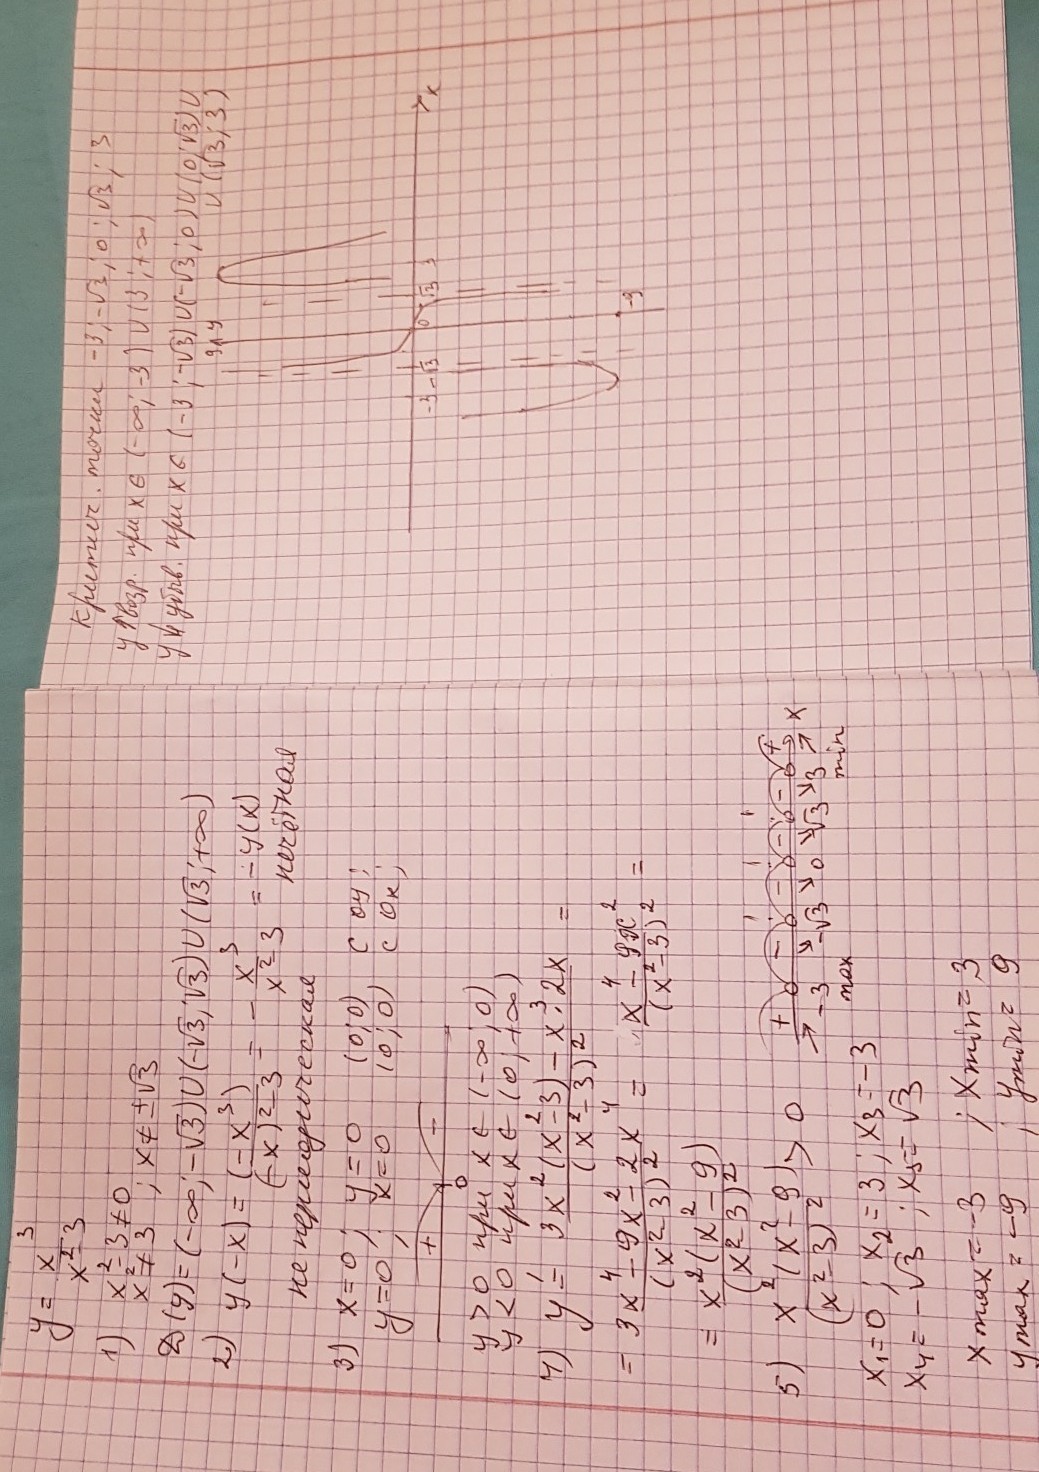 y = x³/(x²-3)
1) x²-3≠0
x²≠3 ; x≠±√3
D(y)=(-∞;-√3)∪(-√3;√3)∪(√3;+∞)
2) y(-x) = (-x³)/((-x)²-3) = - x³/(x²-3) = -y(x)
нечётная
не периодическая
3) x=0; y=0 (0;0) с оу;
y=0; x=0 (0;0) с ох;
+ 0 -
y>0 при x∈(-∞;0)
y<0 при x∈(0;+∞)
4) y' = (3x²(x²-3)-x³·2x)/(x²-3)² =
= (3x⁴-9x²-2x⁴)/(x²-3)² = (x⁴-9x²)/(x²-3)² =
= x²(x²-9)/(x²-3)²
5) x²(x²-9)/(x²-3)² > 0
+ - - - - +
-3 -√3 0 √3 3 x
max min
x₁=0; x₂=3; x₃=-3
x₄=-√3; x₅=√3
xmax=-3 ; xmin=3
ymax=-9 ; ymin=9
Критич. точки -3;-√3;0;√3;3
y↑возр. при x∈(-∞;-3)∪(3;+∞)
y↓убыв. при x∈(-3;-√3)∪(-√3;0)∪(0;√3)∪
∪(√3;3)
9 y
-3 -√3 0 √3 3 x
-9